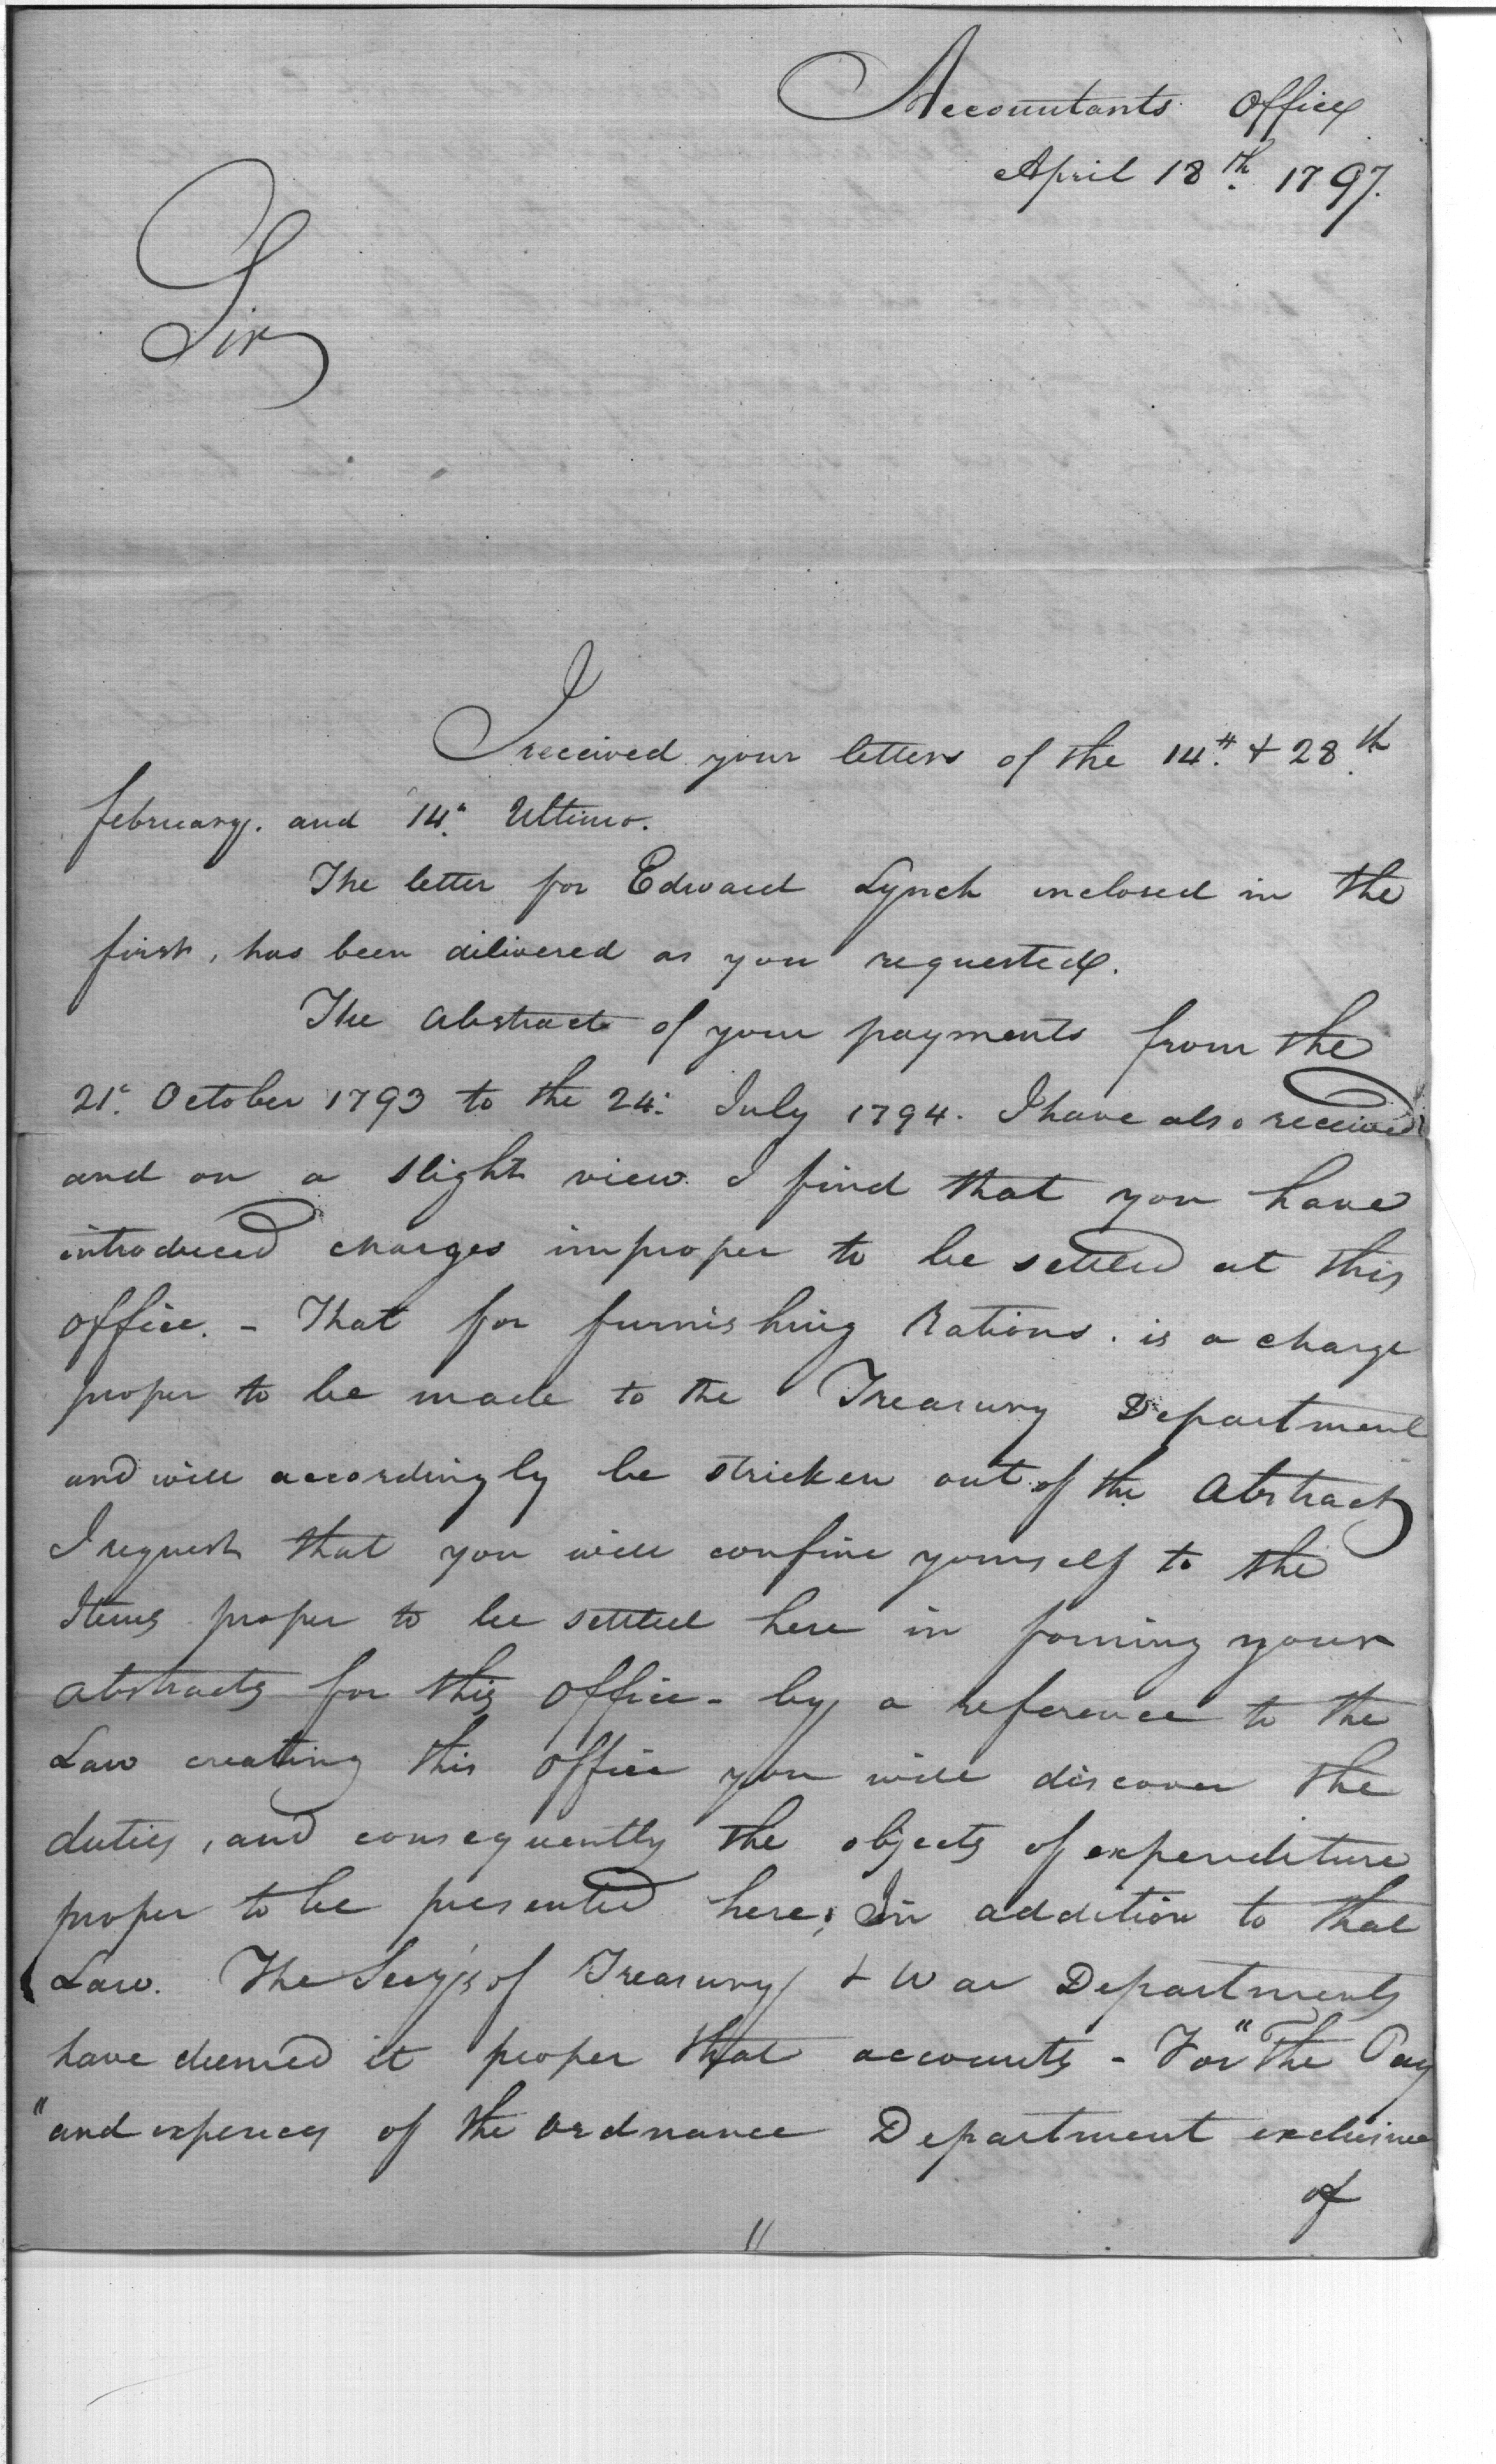 Accountants Office
April 18th 1797.
Sir
I received your letters of the 14th & 28th
february. and 14th Ultimo.
The letter for Edward Lynch inclosed in the
first, has been dilivered as you requested.
The abstract of your payments from the
21st October 1793 to the 24th July 1794. I have also received
and on a slight view I find that you have
introduced charges improper to be settled at this
office. - That for furnishing Rations. is a charge
proper to be made to the Treasury Department
and will accordingly be stricken out of the abstract
I request that you will confine yourself to the
Items proper to be settled here in forming your
abstracts for this office - by a reference to the
Law creating this office you will discover the
duties, and consequently the objects of expenditure
proper to be presented here; In addition to that
Law. The Secy's of Treasury & War Departments
have deemed it proper that accounts - For "The Pay
"and expences of the Ordnance Department exclusive
of